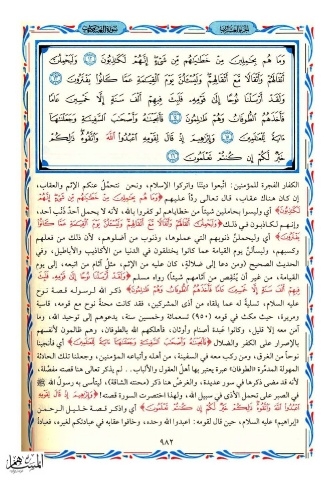 الجزء العشرون
سورة العنكبوت
وَمَا هُم بِحَامِلِينَ مِنْ خَطَايَاهُم مِّن شَيْءٍ إِنَّهُمْ لَكَاذِبُونَ ﴿١٢﴾ وَلَيَحْمِلُنَّ
أَثْقَالَهُمْ وَأَثْقَالًا مَّعَ أَثْقَالِهِمْ وَلَيُسْأَلُنَّ يَوْمَ الْقِيَامَةِ عَمَّا كَانُوا يَفْتَرُونَ ﴿١٣﴾
وَلَقَدْ أَرْسَلْنَا نُوحًا إِلَى قَوْمِهِ فَلَبِثَ فِيهِمْ أَلْفَ سَنَةٍ إِلَّا خَمْسِينَ عَامًا
فَأَخَذَهُمُ الطُّوفَانُ وَهُمْ ظَالِمُونَ ﴿١٤﴾ فَأَنجَيْنَاهُ وَأَصْحَابَ السَّفِينَةِ وَجَعَلْنَاهَا
آيَةً لِّلْعَالَمِينَ ﴿١٥﴾ وَإِبْرَاهِيمَ إِذْ قَالَ لِقَوْمِهِ اعْبُدُوا اللَّهَ وَاتَّقُوهُ ذَلِكُمْ
خَيْرٌ لَّكُمْ إِن كُنتُمْ تَعْلَمُونَ ﴿١٦﴾
الكفار الفجرة للمؤمنين: اتَّبعوا ديننا واتركوا الإسلام، ونحن نتحمَّل عنكم الإثم والعقاب،
إن كان هناك عقاب، قال تعالى ردًّا عليهم ﴿وَمَا هُم بِحَامِلِينَ مِنْ خَطَايَاهُم مِّن شَيْءٍ إِنَّهُمْ
لَكَاذِبُونَ﴾ أي وليسوا بحاملين شيئاً من خطاياهم لو كفروا بالله، لأنه لا يحمل أحدٌ ذَنْب أحد،
وإنهم لكاذبون في ذلك ﴿وَلَيَحْمِلُنَّ أَثْقَالَهُمْ وَأَثْقَالًا مَّعَ أَثْقَالِهِمْ وَلَيُسْأَلُنَّ يَوْمَ الْقِيَامَةِ عَمَّا كَانُوا
يَفْتَرُونَ﴾ أي وليحملنَّ ذنوبهم التي عملوها، وذنوب من أضلوهم، لأن ذلك من فعلهم
وكسبهم، وليسألنَّ يوم القيامة عما كانوا يختلقون في الدنيا من الأكاذيب والأباطيل، وفي
الحديث الصحيح (ومن دعا إلى ضلالة، كان عليه من الإثم، مثلُ آثام من اتبعه، إلى يوم
القيامة، من غير أن يَنْقص من آثامهم شيئاً) رواه مسلم ﴿وَلَقَدْ أَرْسَلْنَا نُوحًا إِلَى قَوْمِهِ فَلَبِثَ
فِيهِمْ أَلْفَ سَنَةٍ إِلَّا خَمْسِينَ عَامًا فَأَخَذَهُمُ الطُّوفَانُ وَهُمْ ظَالِمُونَ﴾ ذكر الله لرسوله قصة نوح
عليه السلام، تسليةً له عما يلقاه من أذى المشركين، فقد كانت محنةُ نوح مع قومه، قاسية
ومريرة، حيث مكث في قومه (٩٥٠) تسعمائة وخمسين سنة، يدعوهم إلى توحيد الله، وما
آمن معه إلا قليل، وكانوا عبدة أصنام وأوثان، فأهلكهم الله بالطوفان، وهم ظالمون لأنفسهم
بالإصرار على الكفر والضلال ﴿فَأَنجَيْنَاهُ وَأَصْحَابَ السَّفِينَةِ وَجَعَلْنَاهَا آيَةً لِّلْعَالَمِينَ﴾ أي فأنجينا
نوحاً من الغرق، ومن ركب معه في السفينة، من أهله وأتباعه المؤمنين، وجعلنا تلك الحادثة
المهولة المدمِّرة (الطوفان) عبرة يعتبر بها أهلُ العقول والألباب.. لم يذكر تعالى هنا قصته مفصَّلة،
لأنه قد مضى ذكرها في سور عديدة، والغرضُ هنا ذكر (محنته الشاقة)، ليتأسى به رسول الله ﷺ
في الصبر على تحمل الأذى في سبيل الله، ولهذا اختصرت السورة قصته! ﴿وَإِبْرَاهِيمَ إِذْ قَالَ لِقَوْمِهِ
اعْبُدُوا اللَّهَ وَاتَّقُوهُ ذَلِكُمْ خَيْرٌ لَّكُمْ إِن كُنتُمْ تَعْلَمُونَ﴾ أي واذكر قصة خليل الرحمن
«إبراهيم» عليه السلام، حين قال لقومه: اعبدوا الله وحده، وخافوا عقابه في عبادتكم لغيره، فعبادةُ
٩٨٢